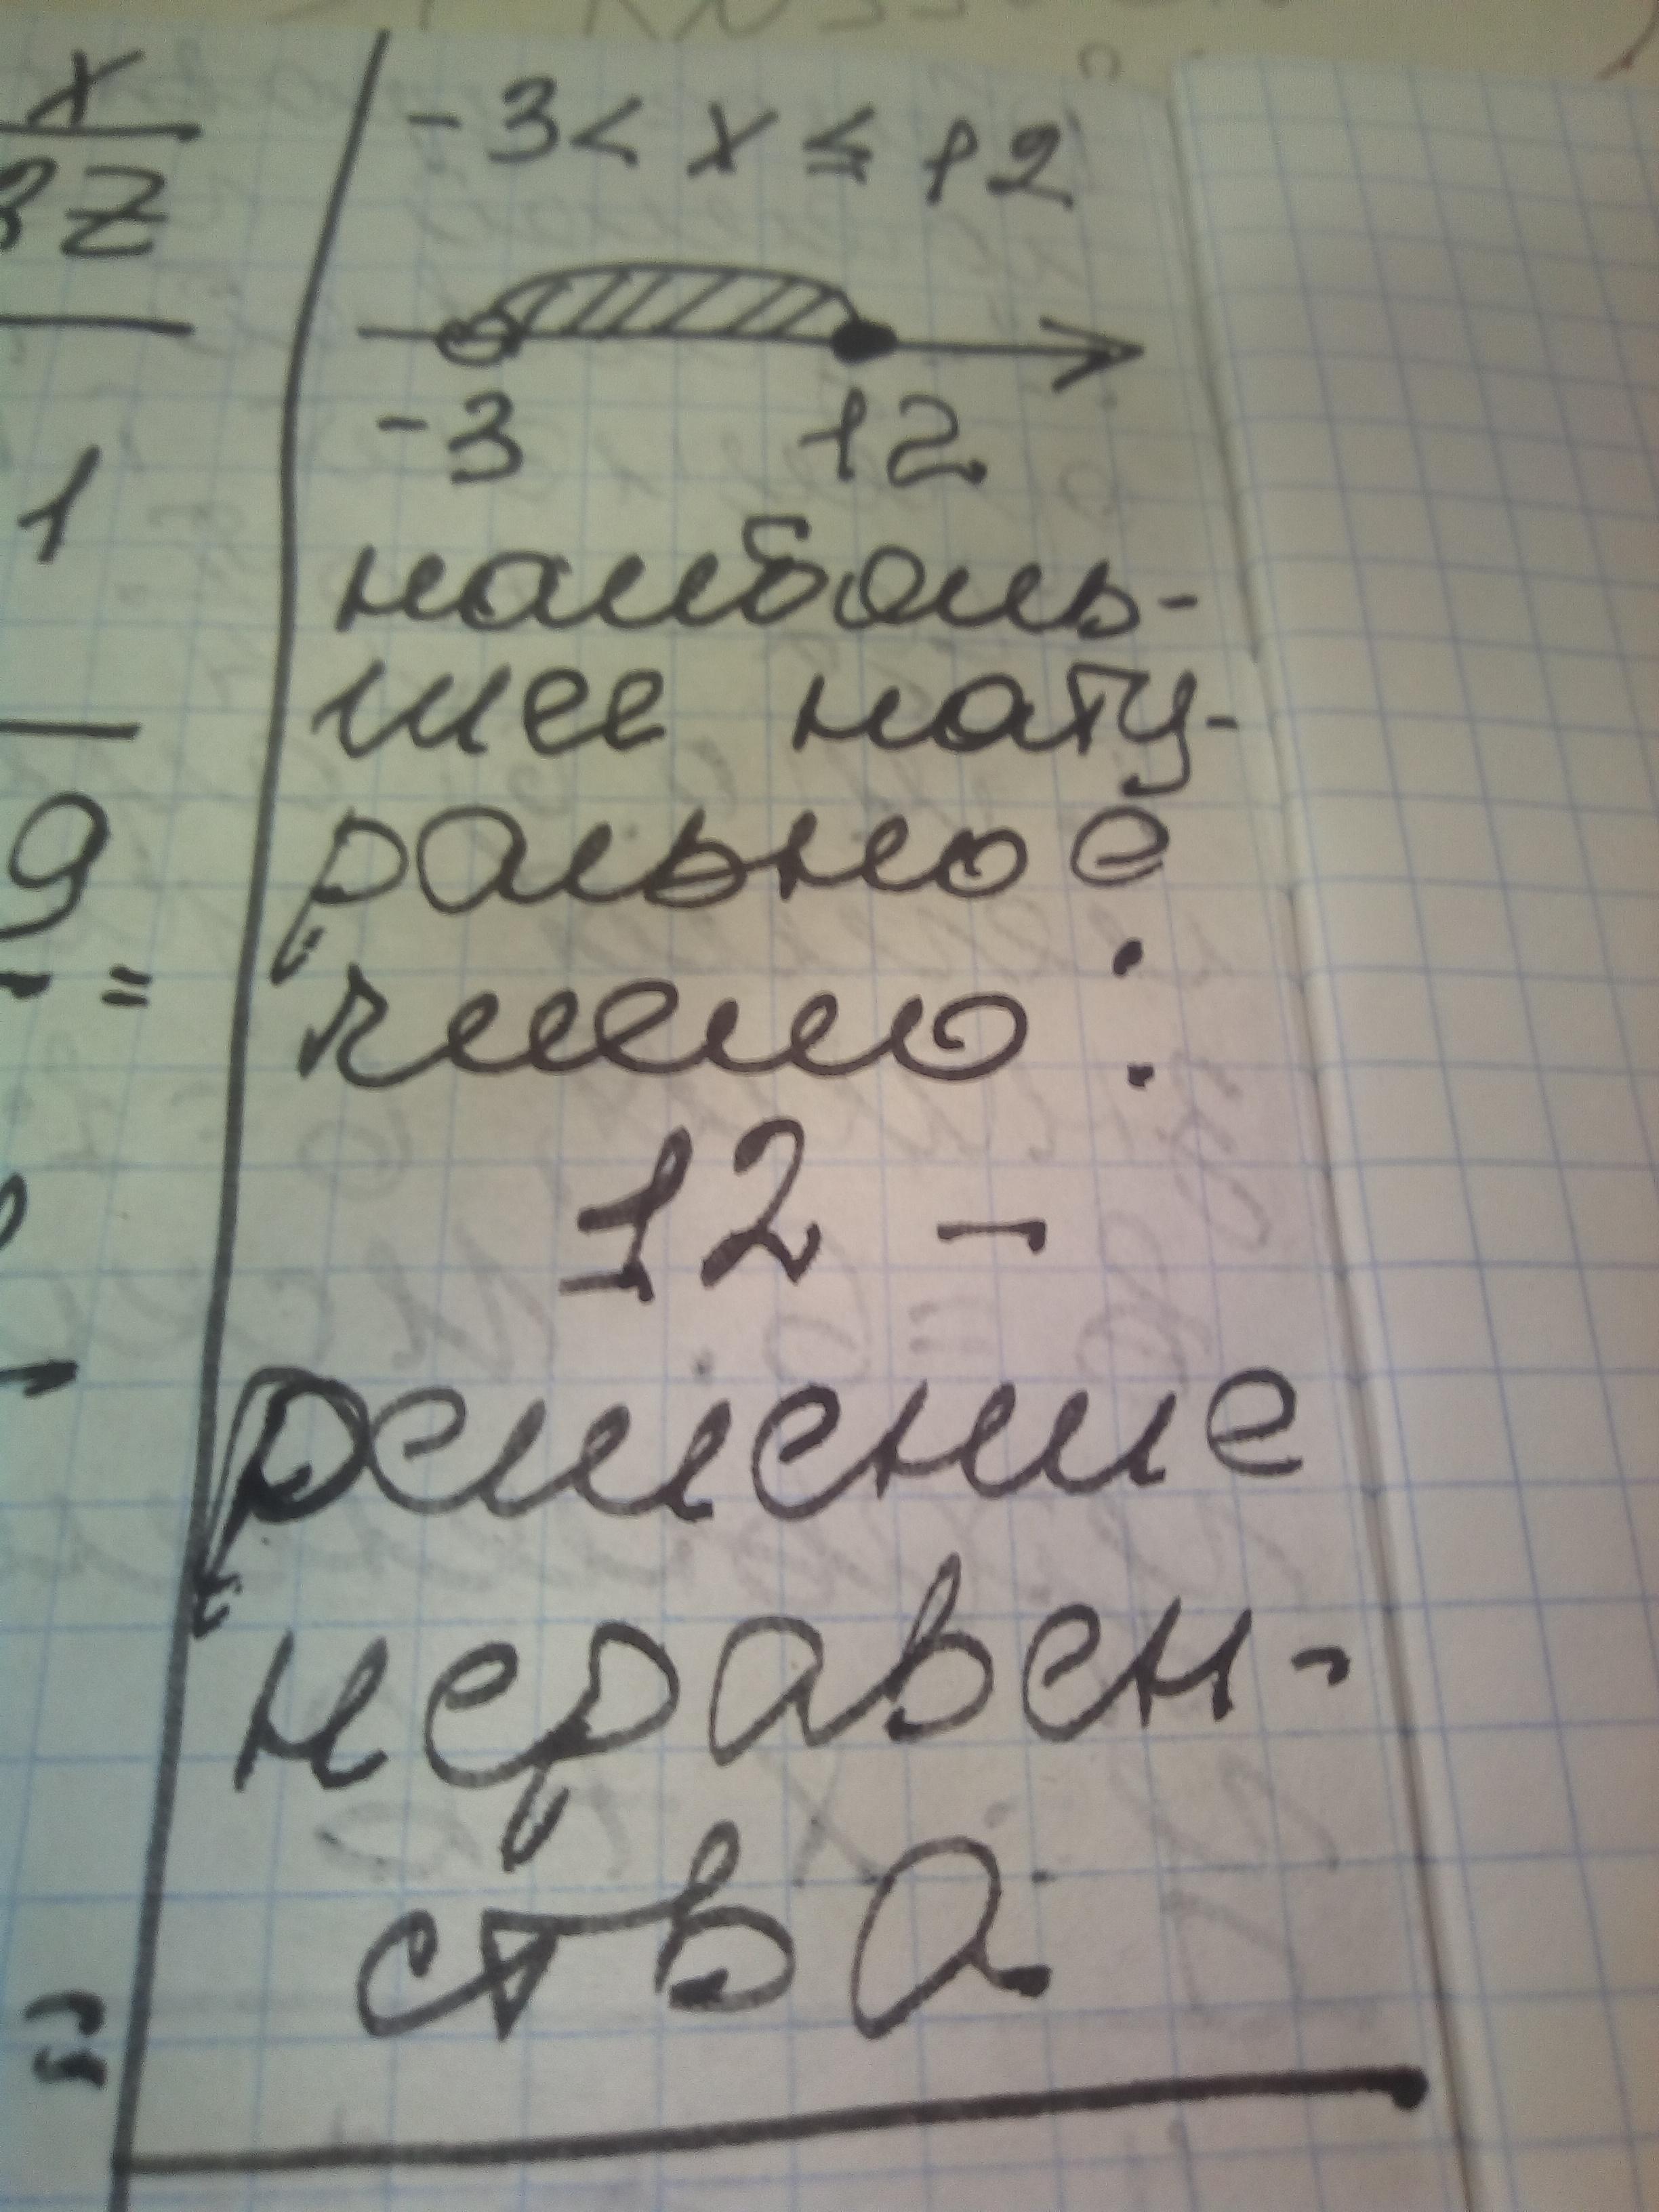 x
3z
-3 < x ≤ 12
-3 12
1
наиболь-
шее нату-
9
ральное
=
число:
12 -
решение
неравен-
ства